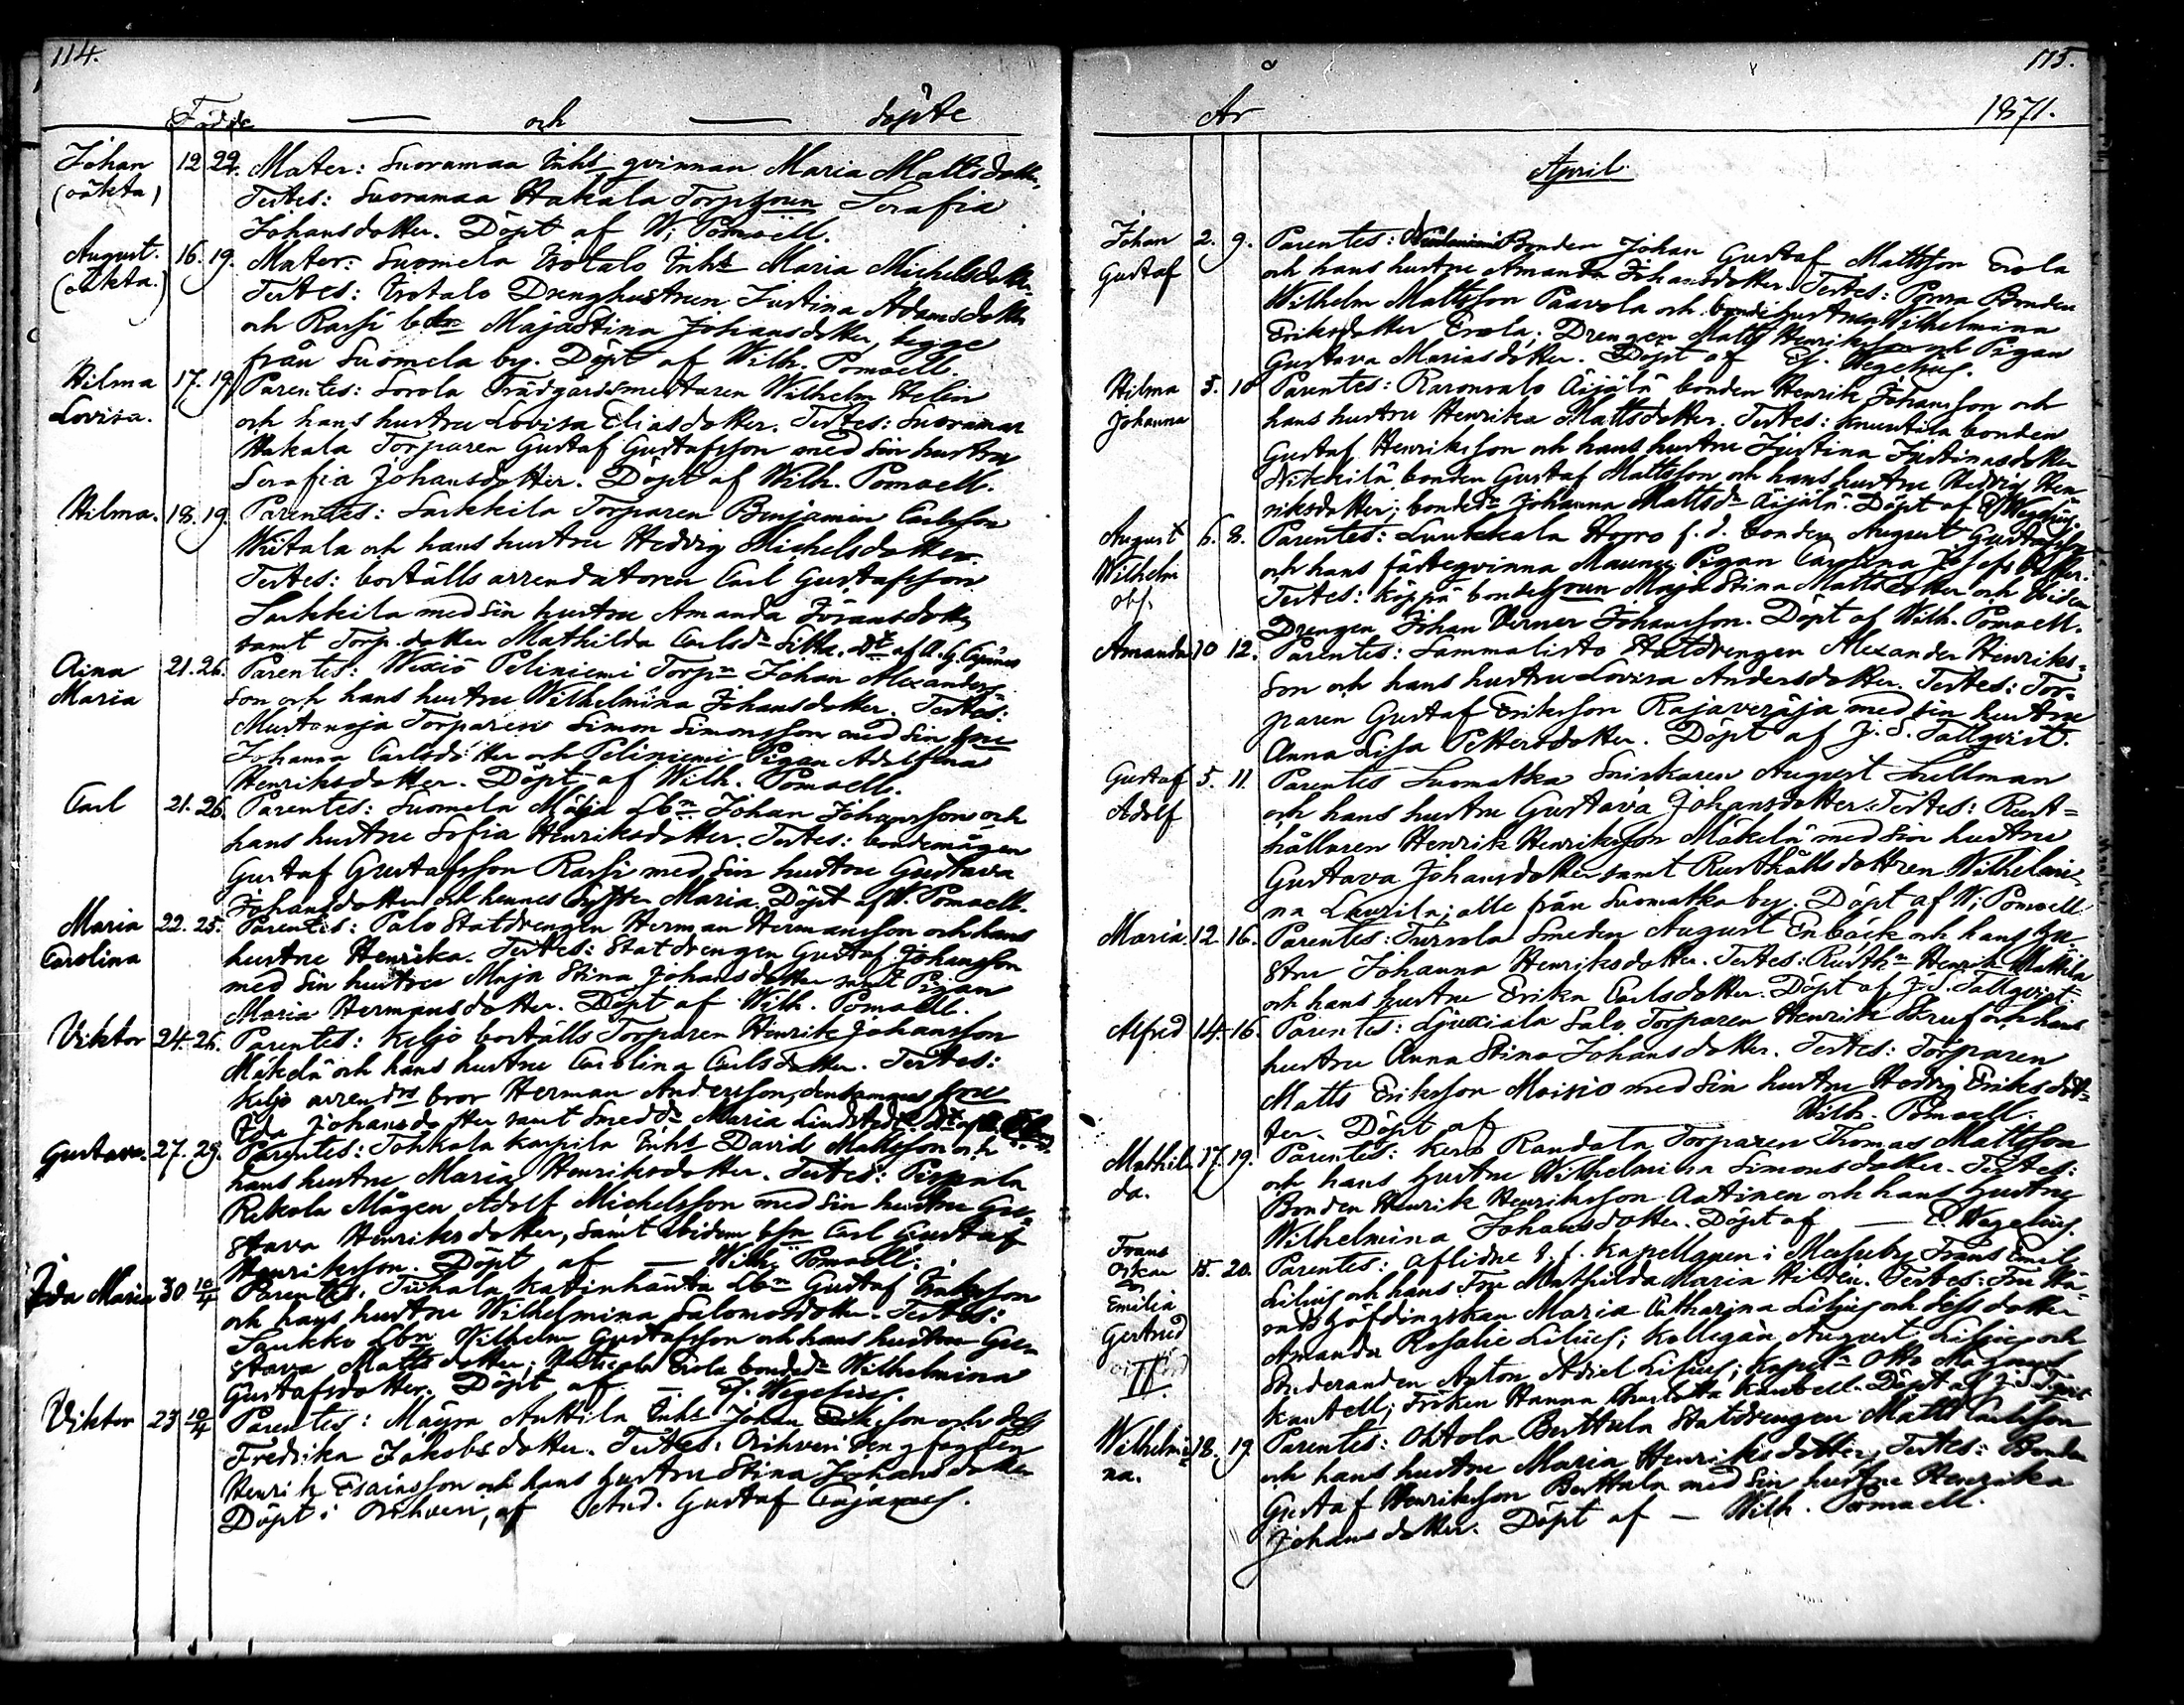 114.
Födde — och — döpte
Johan 12 22. Mater: Suoramaa Inhs qvinnan Maria Mattsdotter,
(oäkta) Testes: Suoramaa Hakala Torp. Hrun Serafia
Johansdotter. Döpt af W; Pomoell.
August. 16. 19. Mater: Suomela Isotalo Inhs Maria Michelsdotter.
(oäkta.) Testes: Isotalo Drenghustrun Justina Adamsdotter
och Rassi Maja Stina Johansdotter, begge
från Suomela by. Döpt af Wilh. Pomoell.
Hilma 17. 19. Parentes: Sorola Trädgårdsmästaren Wilhelm Helin
Lovisa. och hans hustru Lovisa Eliasdotter. Testes: Suoramaa
Hakala Torparen Gustaf Gustafsson med sin hustru
Serafia Johansdotter. Döpt af Wilh. Pomoell.
Hilma. 18. 19. Parentes: Sarkkila Torparen Benjamin Carlsson
Wiitala och hans hustru Hedvig Michelsdotter.
Testes: boställs arrendatoren Carl Gustafsson
Sarkkila med sin hustru Amanda Göransdotter
samt Torp. dotter Mathilda Carlsdr af A. G.
Aina 21. 26. Parentes: Wexiö Peliniemi Torpn Johan Alexanders=
Maria son och hans hustru Wilhelmina Johansdotter. Testes:
Mustanoja Torparen Simon Simonsson med sin hru
Johanna Carlsdotter och Peliniemi Pigan Adolfina
Henriksdotter. Döpt af Wilh. Pomoell.
Carl 21. 26. Parentes: Suomela Mälja Lbn Johan Johansson och
hans hustru Sofia Henriksdotter. Testes: bondemågen
Gustaf Gustafsson Rassi med sin hustru Gustava
Johansdotter och hennes syster Maria. Döpt af W. Pomoell.
Maria 22. 25. Parentes: Palo Statdrengen Herman Hermansson och hans
Carolina hustru Henrika. Testes: Statdrengen Gustaf Johansson
med sin hustru Maja Stina Johansdotter samt Pigan
Maria Hermansdotter. Döpt af Wilh. Pomoell.
Viktor 24. 26. Parentes: Keljo boställs Torparen Henrik Johansson
Mäkelä och hans hustru Carolina Carlsdotter. Testes:
Keljo arrendrs bror Herman Andersson, densammes hru
Eva Johansdotter samt Smeddr Maria Lindstedt.
Gustava. 27. 29. Parentes: Tohkala Karpila Inhs David Mattsson och
hans hustru Maria Henriksdotter. Testes: Perpala
Rekola Mågen Adolf Michelsson med sin hustru Gu=
stava Henriksdotter, samt ibidem bsn Carl Gustaf
Henriksson. Döpt af — Wilh. Pomoell.
Ida Maria 30 10/4 Parentes: Tiihala Katinhänta Lbn Gustaf Eriksson
och hans hustru Wilhelmina Salomonsdotter. Testes:
Saukko Lbn Wilhelm Gustafsson och hans hustru Gu=
stava Mattsdotter; Erola bondedr Wilhelmina
Gustafsdotter. Döpt af — E. Wegelius.
Viktor 23 10/4 Parentes: Mäyrä Anttila Inhs Johan Eriksson och dess
Fredrika Jakobsdotter. Testes: Orihveri
Henrik Esaiasson och hans hustru Stina Johansdotter
Döpt i Orihveri, af Gustaf Cajanus.
115.
År 1871.
April.
Johan 2. 9. Parentes: Bonden Johan Gustaf Mattsson Erola
Gustaf och hans hustru Amanda Johansdotter. Testes: Bonden
Wilhelm Mattsson Paavola och bondehustrun Wilhelmina
Eriksdotter Erola; Drengen Matts Henriksson och Pigan
Gustava Mariasdotter. Döpt af E. Wegelius.
Hilma 5. 10 Parentes: Raronvalo Äijälä bonden Henrik Johansson och
Johanna hans hustru Henrika Mattsdotter. Testes: Knuutila bonden
Gustaf Henriksson och hans hustru Justina Justinasdotter
bonden Gustaf Mattsson och hans hustru Hedvig Hen=
riksdotter; bondedr Johanna Mattsdr Äijälä. Döpt af E. Wegelius.
August 6. 8. Parentes: Luukkala Hopro f. d. bonden August Gustafsson
Wilhelm och hans fästeqvinna Maunu Pigan Carolina Josefsdotter.
obs. Testes: Köppä bondehrun Maja Stina Mattsdotter och
Drengen Johan Verner Johansson. Döpt af Wilh. Pomoell.
Amanda 10 12. Parentes: Sammalisto Statdrengen Alexander Henriks=
son och hans hustru Lovisa Andersdotter. Testes: Tor=
paren Gustaf Eriksson Rajaveräjä med sin hustru
Anna Lisa Pettersdotter. Döpt af J. S. Tallqvist.
Gustaf 5. 11. Parentes Suomatka Snickaren August Hellman
Adolf och hans hustru Gustava Johansdotter. Testes: Rust=
hållaren Henrik Henriksson Mäkelä med sin hustru
Gustava Johansdotter samt Rusthålls dottren Wilhelmi=
na Laurila; alle från Suomatka by. Döpt af W; Pomoell
Maria. 12. 16. Parentes: Turvola Smeden August Enbäck och hans hu=
stru Johanna Henriksdotter. Testes: Rusthn Henrik Mattila
och hans hustru Erika Carlsdotter. Döpt af J. S. Tallqvist.
Alfred 14. 16. Parentes: Ljuxiala Salo Torparen Henrik Skruf och hans
hustru Anna Stina Johansdotter. Testes: Torparen
Matts Eriksson Moisio med sin hustru Hedvig Eriksdot=
ter. Döpt af Wilh. Pomoell.
Mathil= 17. 19. Parentes: Kerö Randata Torparen Thomas Mattsson
da. och hans hustru Wilhelmina Simonsdotter. Testes:
Bonden Henrik Henriksson Aatinen och hans hustru
Wilhelmina Johansdotter. Döpt af — E. Wegelius.
Frans 15. 20. Parentes: aflidne v. f. Kapellanen i Messuby Frans Emil
Oskar Lilius och hans Fru Mathilda Maria Hildén. Testes: Fru Hä=
Emilia radshöfdingskan Maria Catharina Lilius och dess dotter
Gertrud Amanda Rosalie Lilius; Kollegan August Lilius och
II. Studeranden Anton Adiel Lilius; Kapeln Otto Magnus
Kantell; Fröken Hanna Charlotta Kantell. Döpt af J. S.
Wilhelmi= 18. 19. Parentes: Ohtola Berttula Statdrengen Matts Carlsson
na. och hans hustru Maria Henriksdotter. Testes: Bonden
Gustaf Henriksson Berttula med sin hustru Henrika
Johansdotter. Döpt af — Wilh. Pomoell.